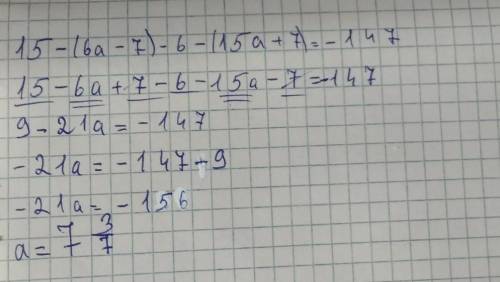 15-(6a-7)-6-(15a+7)=-147
15-6a+7-6-15a-7=-147
9-21a=-147
-21a=-147-9
-21a=-156
a=7 3/7